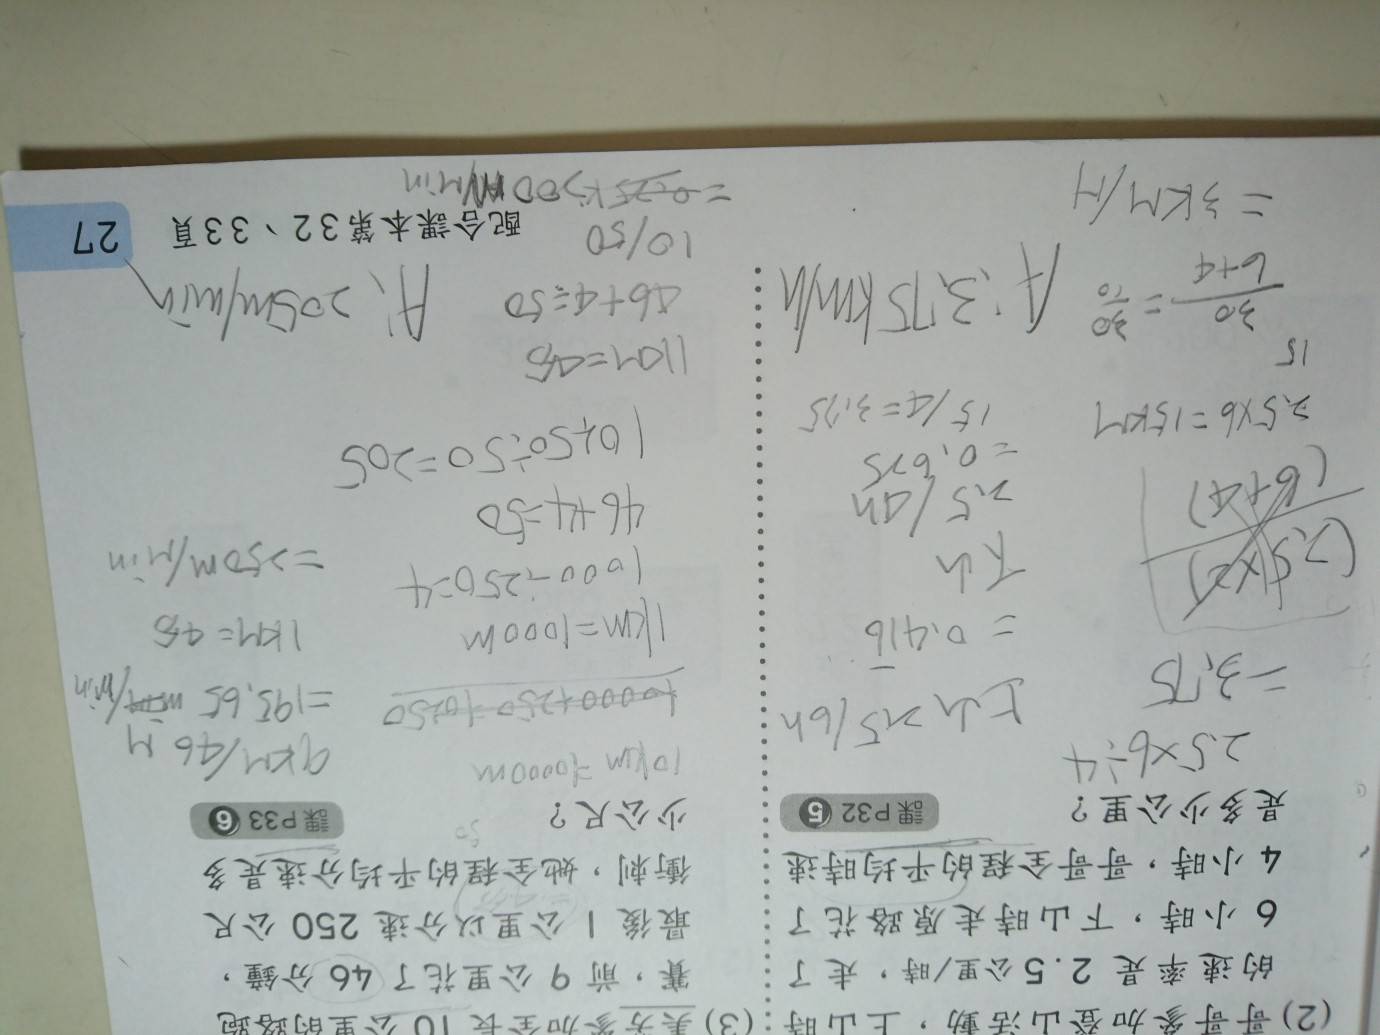 (2) 哥哥參加登山活動，上山時
的速率是 2.5 公里/時，走了
6 小時，下山時走原路花了
4 小時，哥哥全程的平均時速
是多少公里？ 課P32 5
2.5×6÷4
=3.75
(6+4)
2.5×6=15KM
15
30/(6+4) = 30/10
=3KM/H
上山 2.5/6h
=0.416
下山
2.5/4h
=0.625
15/4=3.75
A:3.75km/h
(3) 美芳參加全長 10 公里的路跑
賽，前 9 公里花了 46 分鐘，
最後 1 公里以分速 250 公尺
衝刺，她全程的平均分速是多
少公尺？ 課P33 6
10km=10000m
10000+250=10250
1km=1000m
1000÷250=4
46+4=50
10250÷50=205
1KM=4分
46+4=50
10/50
9KM/46M
=195.65 m/min
1KM=4分
=250M/Min
A:205m/min
配合課本第32、33頁 27